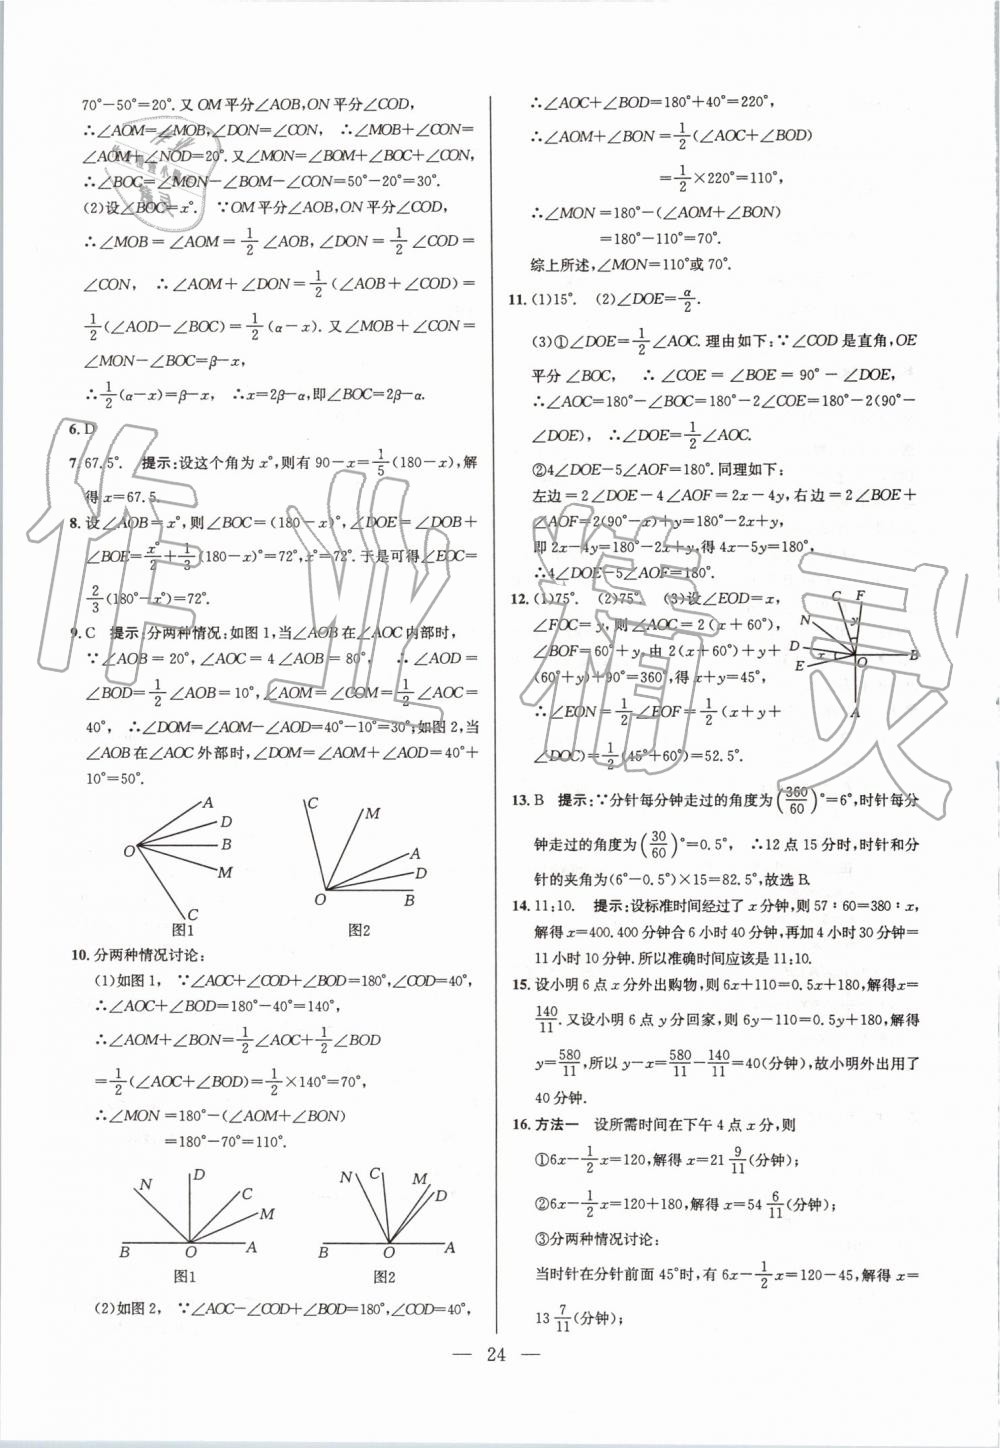 70°-50°=20°.又 OM平分∠AOB,ON平分∠COD,
∴∠AOM=∠MOB,∠DON=∠CON, ∴∠MOB+∠CON=
∠AOM+∠NOD=20°.又∠MON=∠BOM+∠BOC+∠CON,
∴∠BOC=∠MON-∠BOM-∠CON=50°-20°=30°.
(2)设∠BOC=x°. ∵OM平分∠AOB,ON平分∠COD,
∴∠MOB=∠AOM=1/2∠AOB,∠DON=1/2∠COD=
∠CON, ∴∠AOM+∠DON=1/2(∠AOB+∠COD)=
1/2(∠AOD-∠BOC)=1/2(α-x).又∠MOB+∠CON=
∠MON-∠BOC=β-x,
∴1/2(α-x)=β-x, ∴x=2β-α,即∠BOC=2β-α.
6. D
7. 67.5°. 提示:设这个角为x°,则有90-x=1/5(180-x),解
得x=67.5.
8. 设∠AOB=x°,则∠BOC=(180-x)°,∠DOE=∠DOB+
∠BOE=x°/2+1/3(180-x)°=72°,x°=72°.于是可得∠EOC=
2/3(180°-x°)=72°.
9. C 提示:分两种情况:如图1,当∠AOB在∠AOC内部时,
∵∠AOB=20°,∠AOC=4∠AOB=80°, ∴∠AOD=
∠BOD=1/2∠AOB=10°,∠AOM=∠COM=1/2∠AOC=
40°, ∴∠DOM=∠AOM-∠AOD=40°-10°=30°;如图2,当
∠AOB在∠AOC外部时,∠DOM=∠AOM+∠AOD=40°+
10°=50°.
A
D
O
B
M
C
图1
C
M
A
D
O
B
图2
10. 分两种情况讨论:
(1)如图1, ∵∠AOC+∠COD+∠BOD=180°,∠COD=40°,
∴∠AOC+∠BOD=180°-40°=140°,
∴∠AOM+∠BON=1/2∠AOC+1/2∠BOD
=1/2(∠AOC+∠BOD)=1/2×140°=70°,
∴∠MON=180°-(∠AOM+∠BON)
=180°-70°=110°.
N
D
C
M
B
O
A
图1
N
C
M
D
B
O
A
图2
(2)如图2, ∵∠AOC-∠COD+∠BOD=180°,∠COD=40°,
∴∠AOC+∠BOD=180°+40°=220°,
∴∠AOM+∠BON=1/2(∠AOC+∠BOD)
=1/2×220°=110°,
∴∠MON=180°-(∠AOM+∠BON)
=180°-110°=70°.
综上所述,∠MON=110°或70°.
11. (1)15°. (2)∠DOE=α/2.
(3)①∠DOE=1/2∠AOC.理由如下:∵∠COD是直角,OE
平分∠BOC, ∴∠COE=∠BOE=90°-∠DOE,
∴∠AOC=180°-∠BOC=180°-2∠COE=180°-2(90°-
∠DOE), ∴∠DOE=1/2∠AOC.
②4∠DOE-5∠AOF=180°.同理如下:
左边=2∠DOE-4∠AOF=2x-4y,右边=2∠BOE+
∠AOF=2(90°-x)+y=180°-2x+y,
即2x-4y=180°-2x+y,得4x-5y=180°,
∴4∠DOE-5∠AOF=180°.
12. (1)75°. (2)75°. (3)设∠EOD=x,
∠FOC=y,则∠AOC=2(x+60°),
∠BOF=60°+y.由2(x+60°)+y+
(60°+y)+90°=360°,得x+y=45°,
∴∠EON=1/2∠EOF=1/2(x+y+
∠DOC)=1/2(45°+60°)=52.5°.
C
F
N
y
D
x
O
B
E
A
13. B 提示:∵分针每分钟走过的角度为(360/60)°=6°,时针每分
钟走过的角度为(30/60)°=0.5°, ∴12点15分时,时针和分
针的夹角为(6°-0.5°)×15=82.5°,故选B.
14. 11:10. 提示:设标准时间经过了x分钟,则57∶60=380∶x,
解得x=400.400分钟合6小时40分钟,再加4小时30分钟=
11小时10分钟.所以准确时间应该是11:10.
15. 设小明6点x分外出购物,则6x+110=0.5x+180,解得x=
140/11.又设小明6点y分回家,则6y-110=0.5y+180,解得
y=580/11,所以y-x=580/11-140/11=40(分钟),故小明外出用了
40分钟.
16. 方法一 设所需时间在下午4点x分,则
①6x-1/2x=120,解得x=21 9/11(分钟);
②6x-1/2x=120+180,解得x=54 6/11(分钟);
③分两种情况讨论:
当时针在分针前面45°时,有6x-1/2x=120-45,解得x=
13 7/11(分钟);
— 24 —
作业精灵